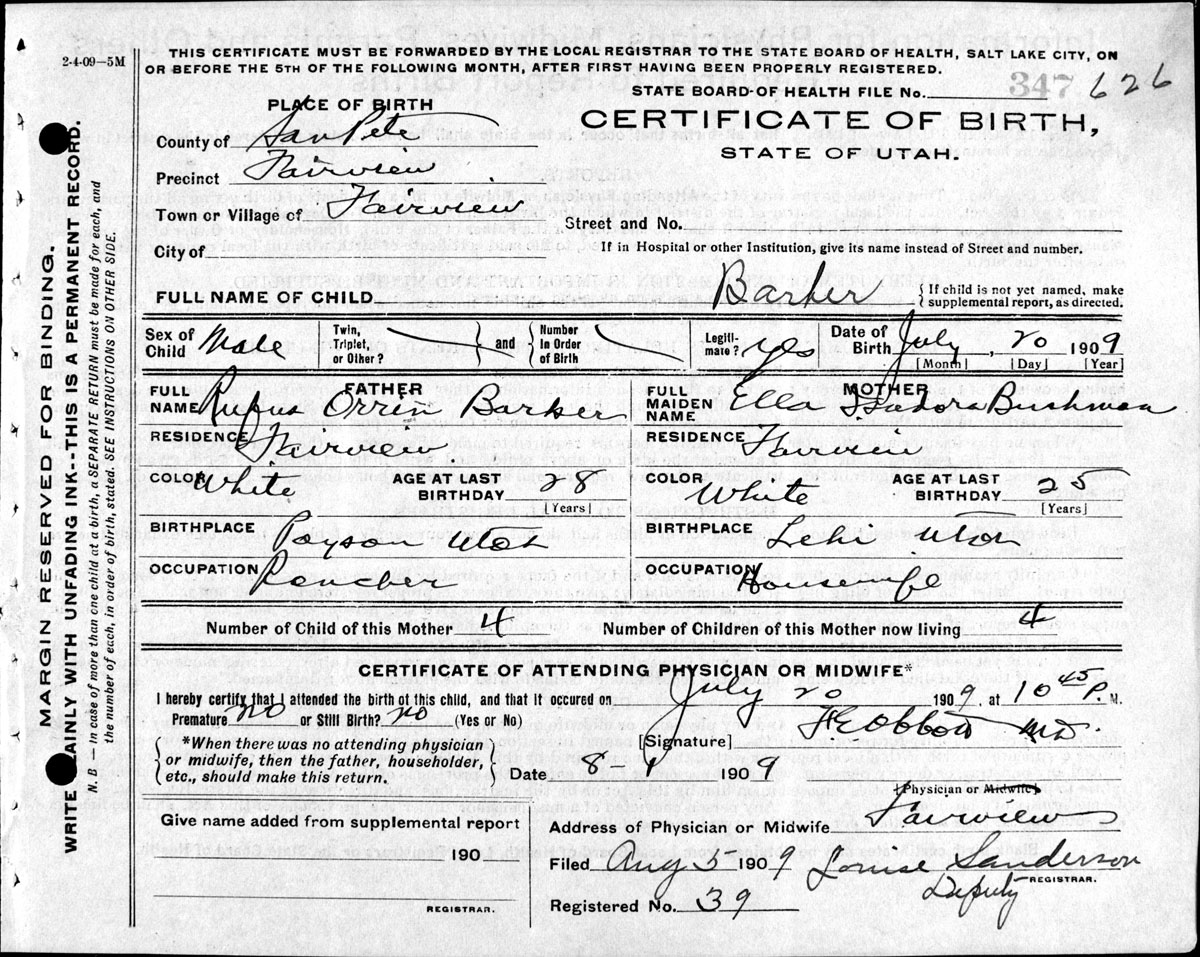 2-4-09—5M
THIS CERTIFICATE MUST BE FORWARDED BY THE LOCAL REGISTRAR TO THE STATE BOARD OF HEALTH, SALT LAKE CITY, ON
OR BEFORE THE 5TH OF THE FOLLOWING MONTH, AFTER FIRST HAVING BEEN PROPERLY REGISTERED.
STATE BOARD OF HEALTH FILE No. 347 626
PLACE OF BIRTH
CERTIFICATE OF BIRTH,
STATE OF UTAH.
County of San Pete
Precinct Fairview
Town or Village of Fairview
Street and No.
City of
If in Hospital or other Institution, give its name instead of Street and number.
FULL NAME OF CHILD Barker
{If child is not yet named, make
supplemental report, as directed.
Sex of Child Male Twin, Triplet, or Other? and Number in Order of Birth Legiti-mate? yes Date of Birth July, 20 1909
[Month] [Day] [Year]
FATHER
FULL NAME Rufus Orrin Barker
RESIDENCE Fairview
COLOR White AGE AT LAST BIRTHDAY 28
[Years]
BIRTHPLACE Payson Utah
OCCUPATION Rancher
MOTHER
FULL MAIDEN NAME Ella Isadora Bushman
RESIDENCE Fairview
COLOR White AGE AT LAST BIRTHDAY 25
[Years]
BIRTHPLACE Lehi Utah
OCCUPATION Housewife
Number of Child of this Mother 4 Number of Children of this Mother now living 4
CERTIFICATE OF ATTENDING PHYSICIAN OR MIDWIFE*
I hereby certify that I attended the birth of this child, and that it occured on July 20 1909, at 10 45 P. M.
Premature No or Still Birth? No (Yes or No)
{*When there was no attending physician
or midwife, then the father, householder,
etc., should make this return.}
[Signature] MD.
Date 8 1 1909
[Physician or Midwife]
Give name added from supplemental report
190
REGISTRAR.
Address of Physician or Midwife Fairview
Filed Aug 5 1909 Louise Sanderson
Deputy REGISTRAR.
Registered No. 39
MARGIN RESERVED FOR BINDING.
WRITE LAINLY WITH UNFADING INK--THIS IS A PERMANENT RECORD.
N. B — In case of more than one child at a birth, a SEPARATE RETURN must be made for each, and
the number of each, in order of birth, stated. SEE INSTRUCTIONS ON OTHER SIDE.